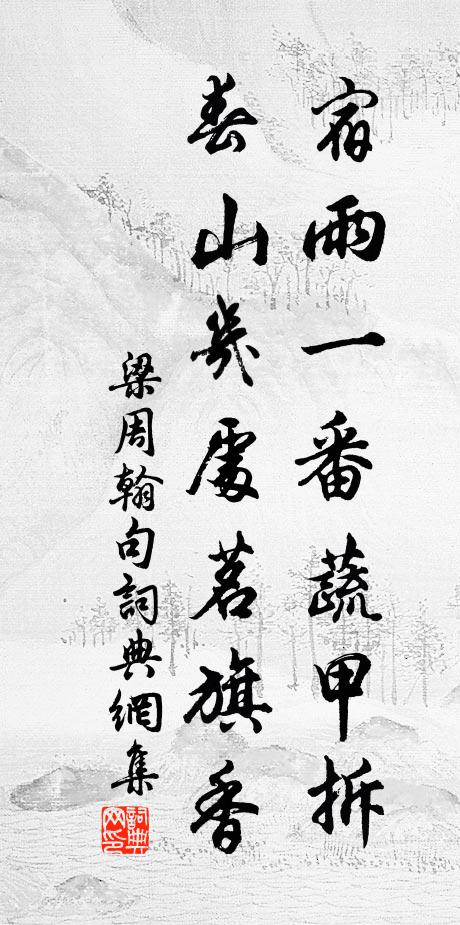 宿雨一番蔬甲拆
春山幾處茗旗香
梁周翰句詞典網集
詞典
网印